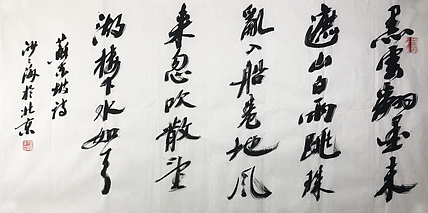 黑雲翻墨未
遮山白雨跳珠
亂入船卷地風
來忽吹散望
湖樓下水如天
蘇東坡詩
沙海於北京